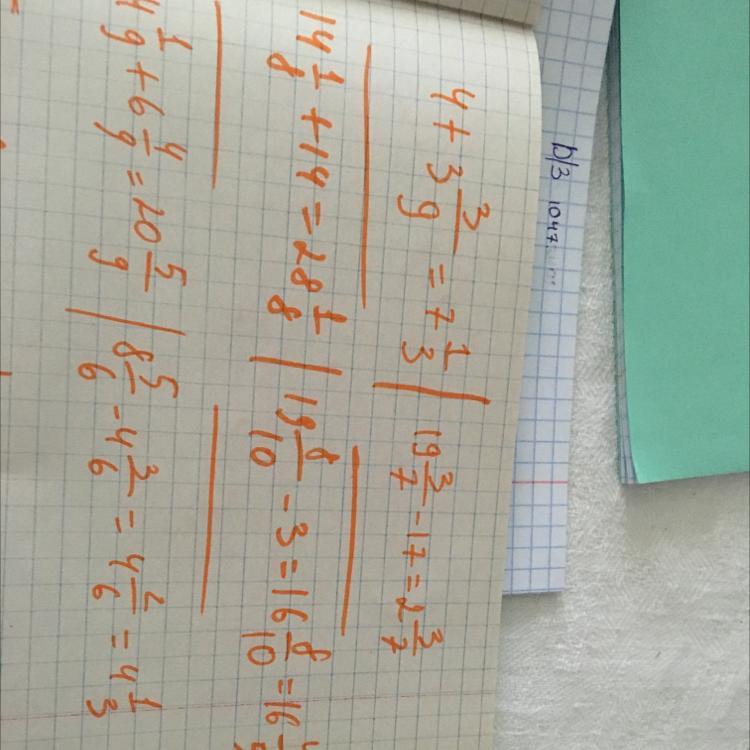 D/З 1047.
4 + 3 3/9 = 7 1/3 | 19 3/7 - 17 = 2 3/7
14 1/8 + 14 = 28 1/8 | 19 8/10 - 3 = 16 8/10 = 16
4 1/9 + 6 4/9 = 10 5/9 | 8 5/6 - 4 3/6 = 4 2/6 = 4 1/3